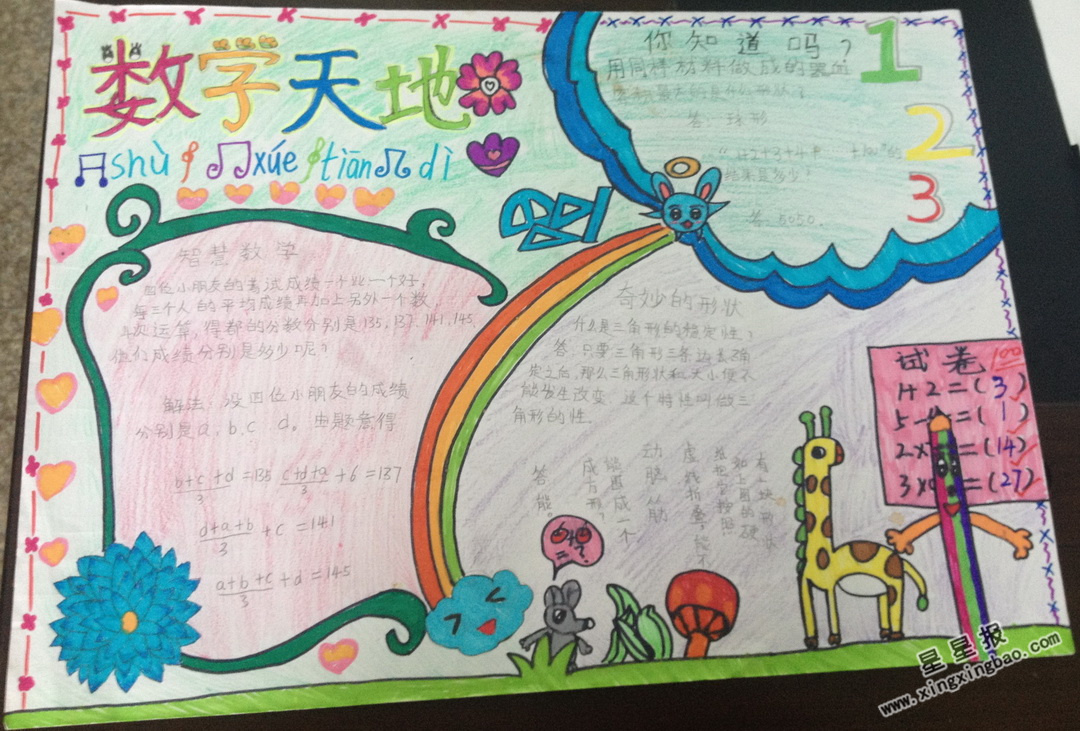 数学天地
shù xúe tiān dì
你知道吗?
用同样材料做成的器皿
最大的是什么形状?
答:球形
"1+2+3+4 +100"的
结果是多少?
答:5050.
1
2
3
智慧数学
四位小朋友的考试成绩一个比一个好,
每三个人的平均成绩再加上另外一个数,
次运算,得都的分数分别是135,137,141,145.
他们成绩分别是多少呢?
解法:设四位小朋友的成绩
分别是a、b、c d。由题意得
b+c+d/3 =135 c+d+a/3 +6=137
d+a+b/3 +c=141
a+b+c/3 +d=145
奇妙的形状
什么是三角形的稳定性?
答:只要三角形三条边长确
定之后,那么三角形状和大小便不
能发生改变,这个特性叫做三
角形的性.
动脑筋
有一块形状
如上图的硬
纸板,按照
虚线折叠,能不
能围成一个
正方形?
答:能。
试卷 100
1+2=(3)
5-=(1)
2x=(14)
3x=(27)
星星报
www.xingxingbao.com